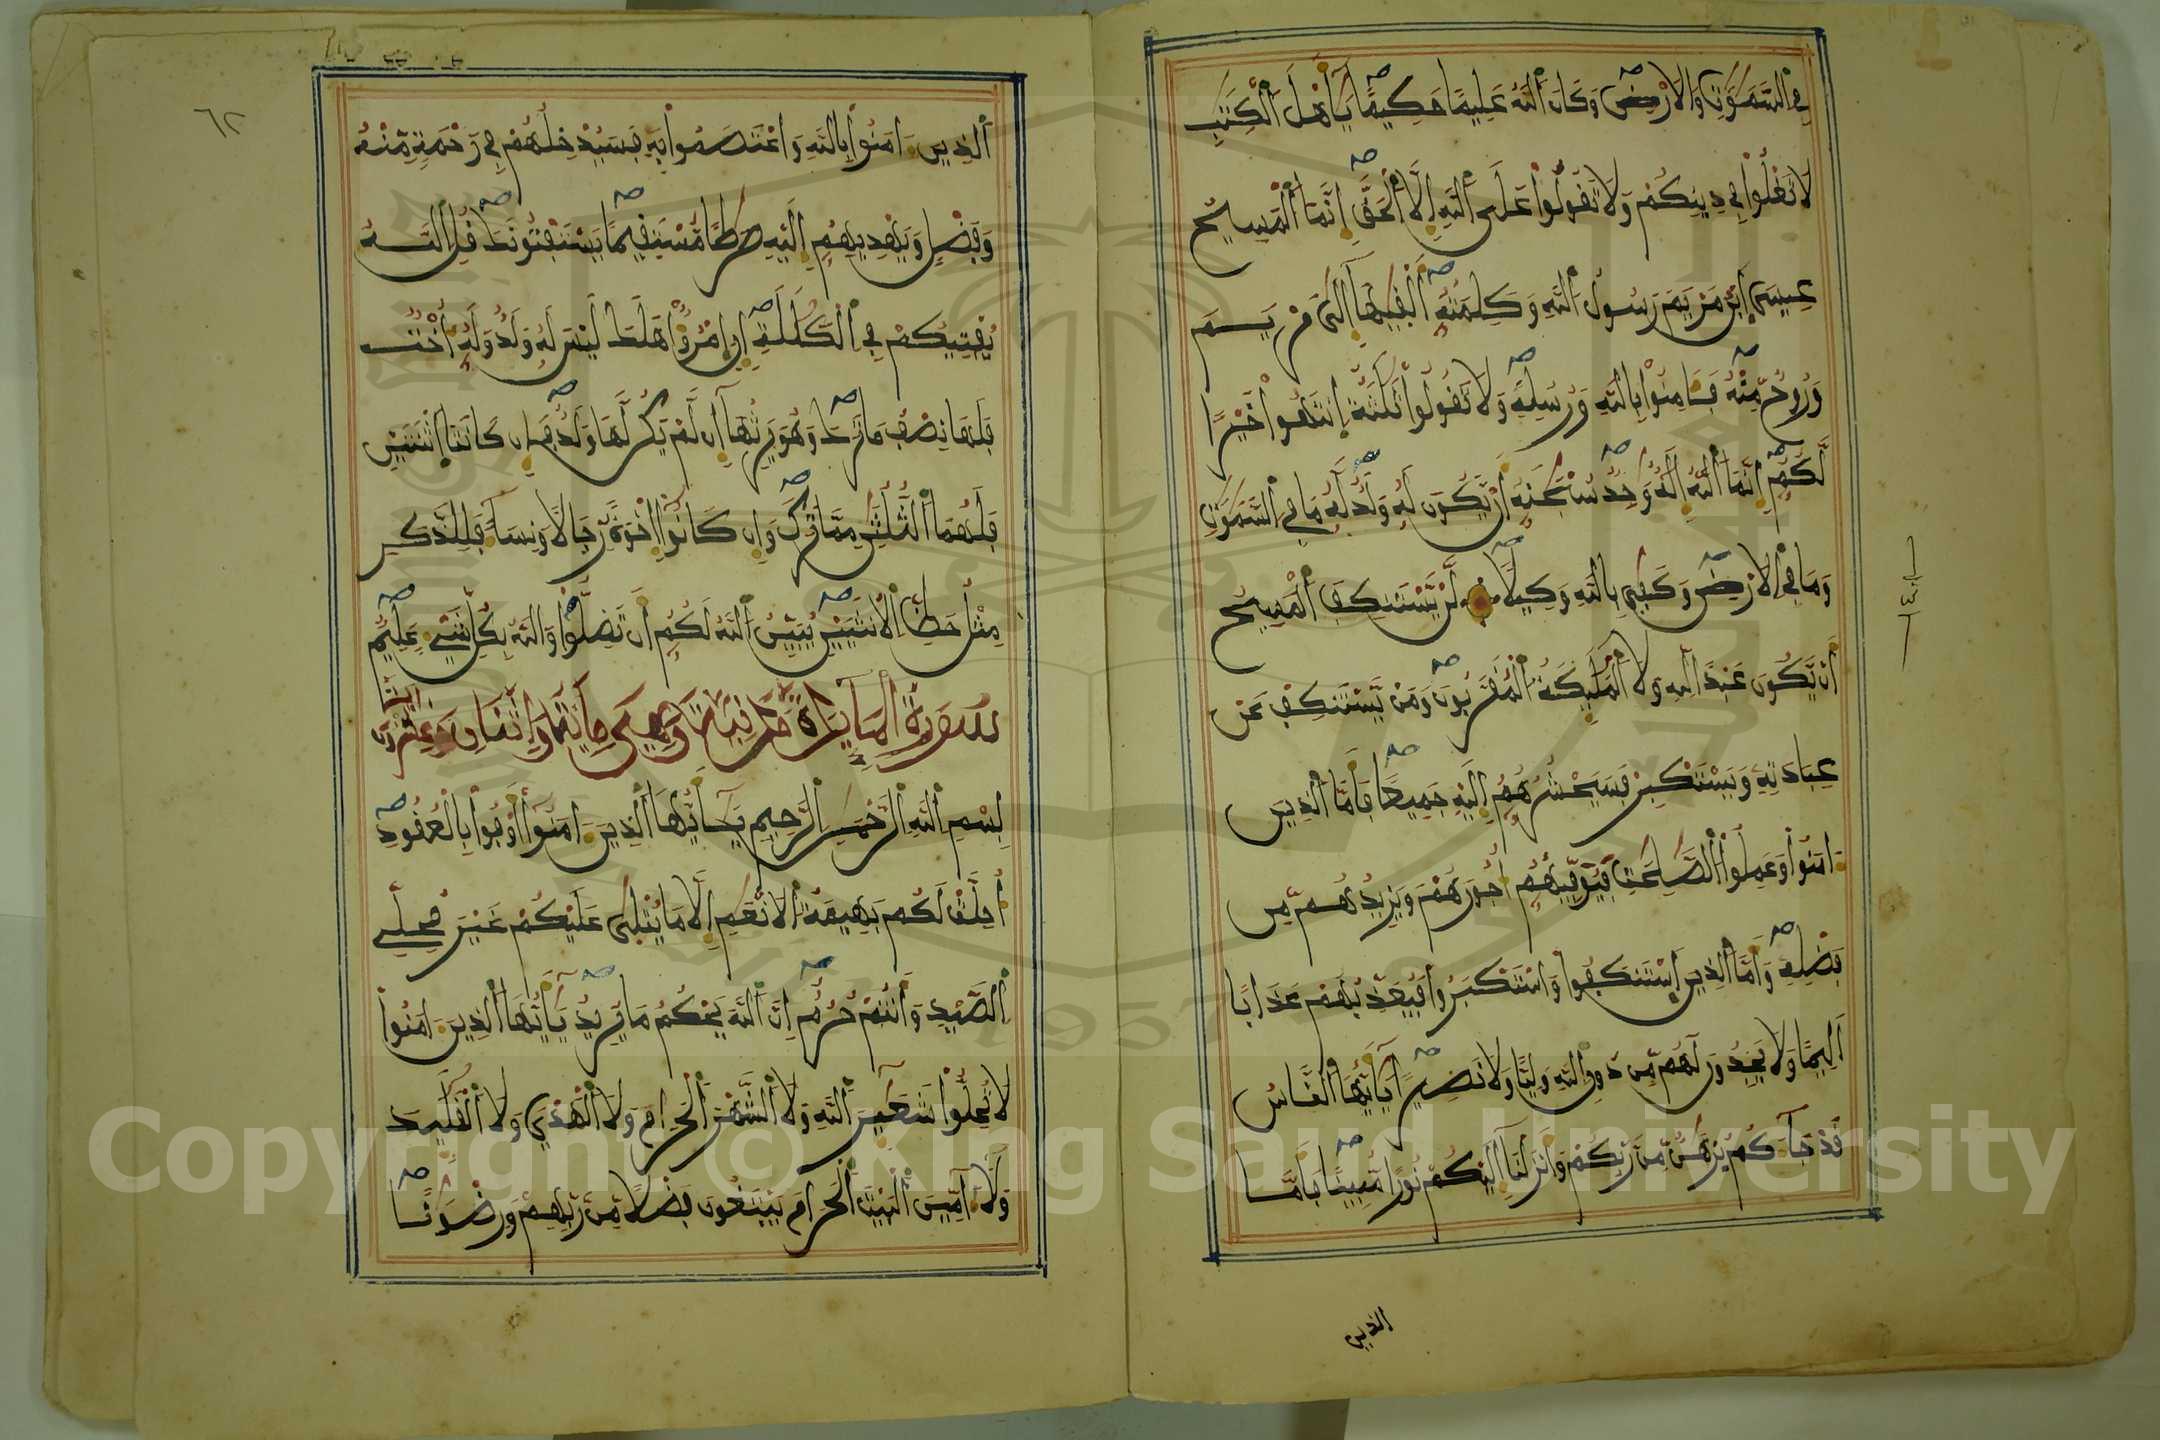 في السموت والارض وكان الله عليما حكيما يأهل الكتب
لا تغلوا في دينكم ولا تقولوا على الله إلا الحق إنما المسيح
عيسى ابن مريم رسول الله وكلمته ألقيها إلى مريم
وروح منه فـامنوا بالله ورسله ولا تقولوا ثلثة انتهوا خيرا
لكم إنما الله إله وحد سبحنه أن يكون له ولد له ما في السموت
وما في الارض وكفى بالله وكيلا لن يستنكف المسيح
أن يكون عبدا لله ولا الملئكة المقربون ومن يستنكف عن
عبادته ويستكبر فسيحشرهم إليه جميعا فأما الذين
امنوا وعملوا الصلحت فيوفيهم أجورهم ويزيدهم من
فضله وأما الذين استنكفوا واستكبروا فيعذبهم عذابا
أليما ولا يجدون لهم من دون الله وليا ولا نصيرا يأيها الناس
قد جاءكم برهن من ربكم وأنزلنا إليكم نورا مبينا فأما
الذين
الذين امنوا بالله واعتصموا به فسيدخلهم في رحمة منه
وفضل ويهديهم إليه صرطا مستقيما يستفتونك قل الله
يفتيكم في الكللة إن امرؤا هلك ليس له ولد وله أخت
فلها نصف ما ترك وهو يرثها إن لم يكن لها ولد فإن كانتا اثنتين
فلهما الثلثن مما ترك وإن كانوا إخوة رجالا ونساء فللذكر
مثل حظ الانثيين يبين الله لكم أن تضلوا والله بكل شيء عليم
سورة المايدة مدنية وهي ماية واثنان وعشرون
بسم الله الرحمن الرحيم يـأيها الذين امنوا أوفوا بالعقود
أحلت لكم بهيمة الانعم إلا ما يتلى عليكم غير محلي
الصيد وأنتم حرم إن الله يحكم ما يريد يأيها الذين امنوا
لا تحلوا شعئر الله ولا الشهر الحرام ولا الهدي ولا القلئد
ولا امين البيت الحرام يبتغون فضلا من ربهم ورضونا
٦٢
Copyright © King Saud University
1957